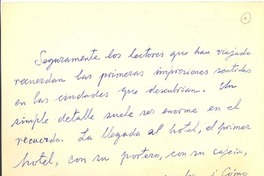 Seguramente los lectores que han viajado
recuerdan las primeras impresiones sentidas
en las ciudades que descubrían. Un
simple detalle suele ser enorme en el
recuerdo. La llegada al hotel, el primer
hotel, con su portero, con su cajón,
¡Cómo